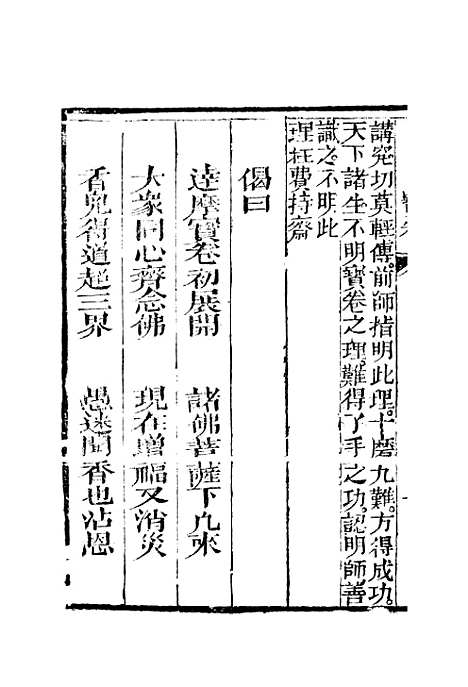 講究切莫輕傳。前師指明此理。十磨九難。方得成功。
天下諸生不明寶卷之理。難得了手之功。認明師善
識之。不明此
理枉費持齋
偈曰
達摩寶卷初展開　諸佛菩薩下凡來
大衆同心齊念佛　現在增福又消災
看完得道超三界　愚迷聞香也沾恩